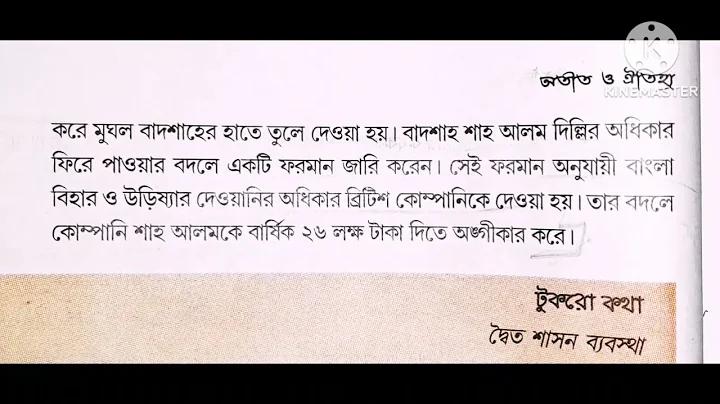 অতীত ও ঐতিহ্য
KINEMASTER
করে মুঘল বাদশাহের হাতে তুলে দেওয়া হয়। বাদশাহ শাহ আলম দিল্লির অধিকার
ফিরে পাওয়ার বদলে একটি ফরমান জারি করেন। সেই ফরমান অনুযায়ী বাংলা
বিহার ও উড়িষ্যার দেওয়ানির অধিকার ব্রিটিশ কোম্পানিকে দেওয়া হয়। তার বদলে
কোম্পানি শাহ আলমকে বার্ষিক ২৬ লক্ষ টাকা দিতে অঙ্গীকার করে।
টুকরো কথা
দ্বৈত শাসন ব্যবস্থা